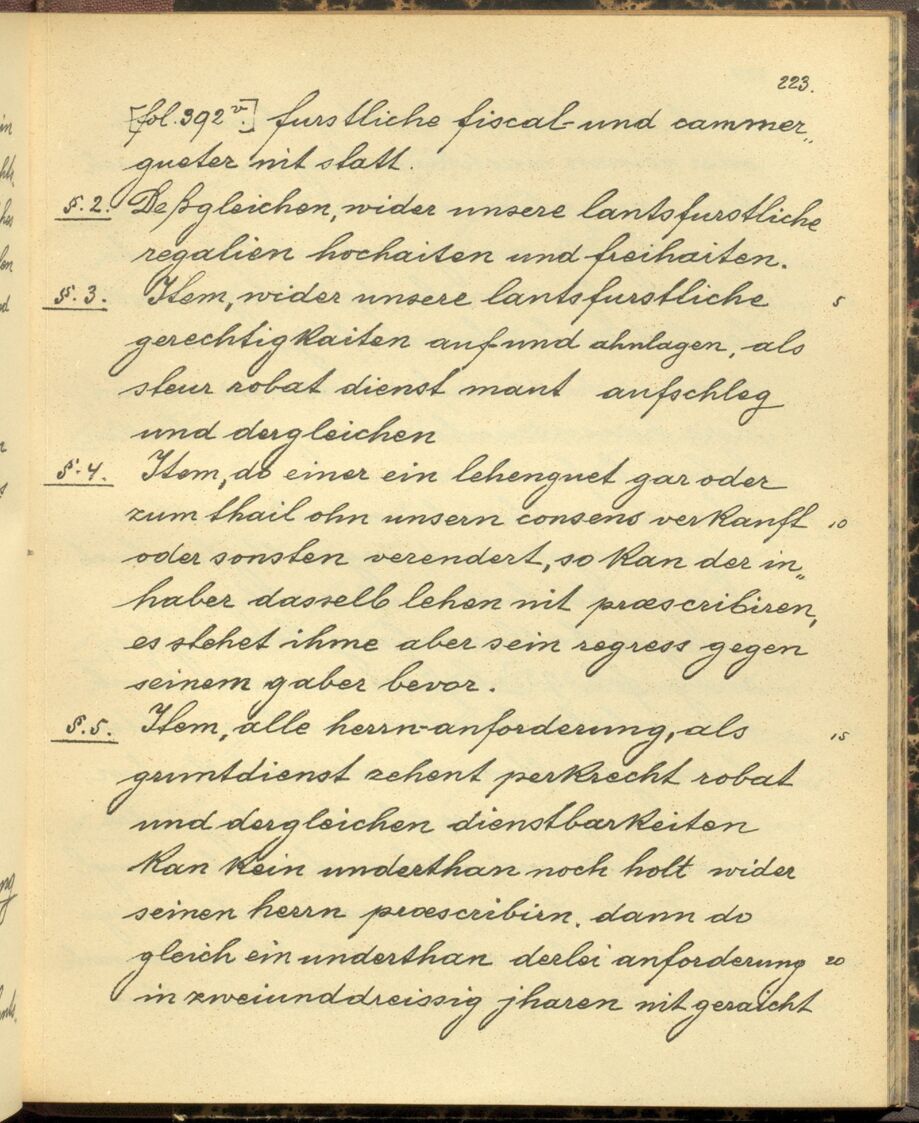 223.
[fol. 392 v.] furstliche fiscal- und cammer„
gueter nit statt.
§. 2. Deßgleichen, wider unsere lantsfurstliche
regalien hochaiten und freihaiten.
§. 3. Item, wider unsere lantsfurstliche 5
gerechtigkaiten auf- und ahnlagen, als
steur robat dienst maut aufschleg
und dergleichen
§. 4. Item, do einer ein lehenguet gar oder
zum thail ohn unsern consens verkauft 10
oder sonsten verendert, so kan der in„
haber dasselb lehen nit præscribiren,
es stehet ihme aber sein regress gegen
seinem gaber bevor.
§. 5. Item, alle herrn-anforderung, als 15
gruntdienst zehent perkrecht robat
und dergleichen dienstbarkeiten
kan kein underthan noch holt wider
seinen herrn præscribirn. dann do
gleich ein underthan derlei anforderung 20
in zweiunddreissig jharen nit geraicht